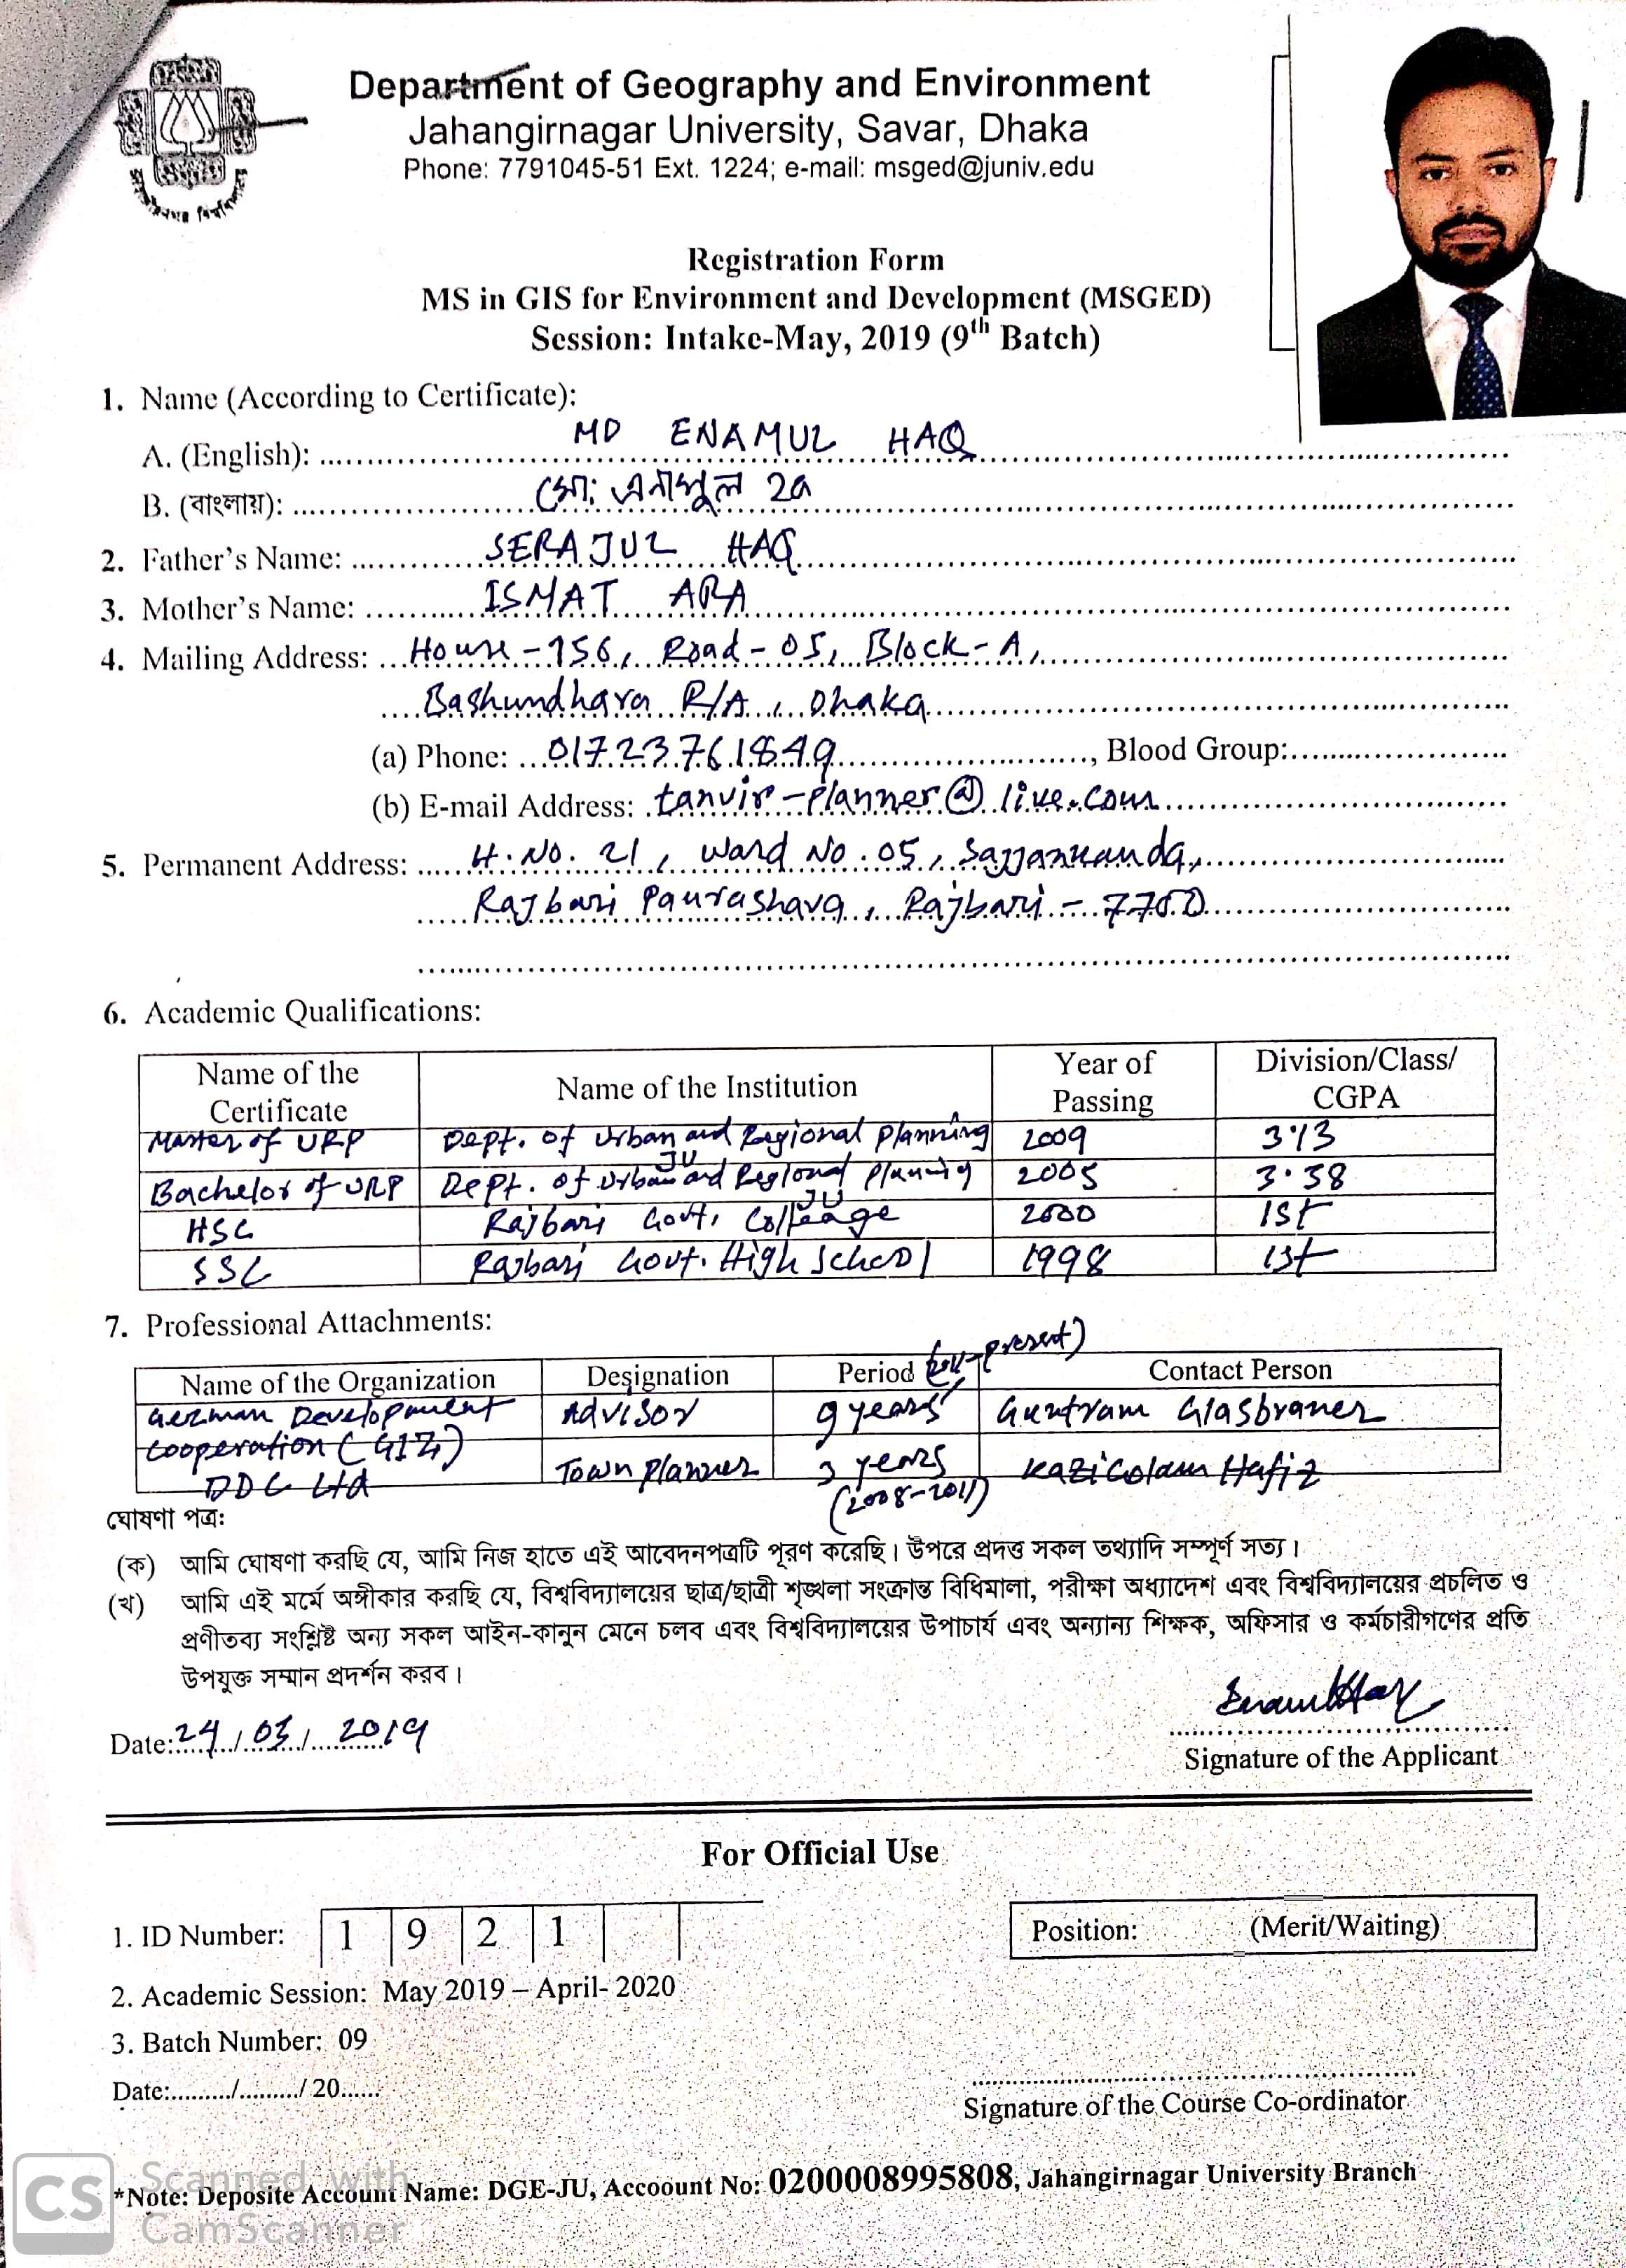 Department of Geography and Environment
Jahangirnagar University, Savar, Dhaka
Phone: 7791045-51 Ext. 1224; e-mail: msged@juniv.edu
Registration Form
MS in GIS for Environment and Development (MSGED)
Session: Intake-May, 2019 (9th Batch)
1. Name (According to Certificate):
A. (English): MD ENAMUL HAQ
B. (বাংলায়): মো: এনামুল হক
2. Father's Name: SERAJUL HAQ
3. Mother's Name: ISMAT ARA
4. Mailing Address: House-156, Road-05, Block-A,
Bashundhara R/A, Dhaka
(a) Phone: 01723761849, Blood Group:
(b) E-mail Address: tanvir-planner@live.com
5. Permanent Address: H.No. 21, Ward No. 05, Sajjankanda,
Rajbari Paurashava, Rajbari - 7700
6. Academic Qualifications:
Name of the Certificate Name of the Institution Year of Passing Division/Class/CGPA
Master of URP Dept. of Urban and Regional Planning JU 2009 3.13
Bachelor of URP Dept. of Urban and Regional Planning JU 2005 3.38
HSC Rajbari Govt. Colleage 2000 1st
SSC Rajbari Govt. High School 1998 1st
7. Professional Attachments:
Name of the Organization Designation Period (2011-present) Contact Person
German Development Cooperation (GIZ) Advisor 9 years Guntram Glasbraner
DDC Ltd Town Planner 3 years (2008-2011) Kazi Golam Hafiz
ঘোষণা পত্র:
(ক) আমি ঘোষণা করছি যে, আমি নিজ হাতে এই আবেদনপত্রটি পূরণ করেছি। উপরে প্রদত্ত সকল তথ্যাদি সম্পূর্ণ সত্য।
(খ) আমি এই মর্মে অঙ্গীকার করছি যে, বিশ্ববিদ্যালয়ের ছাত্র/ছাত্রী শৃঙ্খলা সংক্রান্ত বিধিমালা, পরীক্ষা অধ্যাদেশ এবং বিশ্ববিদ্যালয়ের প্রচলিত ও
প্রণীতব্য সংশ্লিষ্ট অন্য সকল আইন-কানুন মেনে চলব এবং বিশ্ববিদ্যালয়ের উপাচার্য এবং অন্যান্য শিক্ষক, অফিসার ও কর্মচারীগণের প্রতি
উপযুক্ত সম্মান প্রদর্শন করব।
Date: 24/03/2019
Signature of the Applicant
For Official Use
1. ID Number: 1 9 2 1
Position: (Merit/Waiting)
2. Academic Session: May 2019 – April- 2020
3. Batch Number: 09
Date:........./........./ 20......
Signature of the Course Co-ordinator
*Note: Deposite Account Name: DGE-JU, Accoount No: 0200008995808, Jahangirnagar University Branch
CS Scanned with
CamScanner